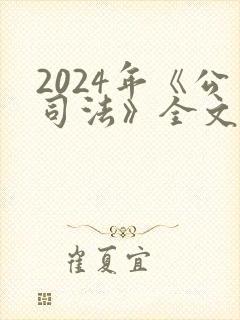 2024年《公
司法》全文
崔夏宜